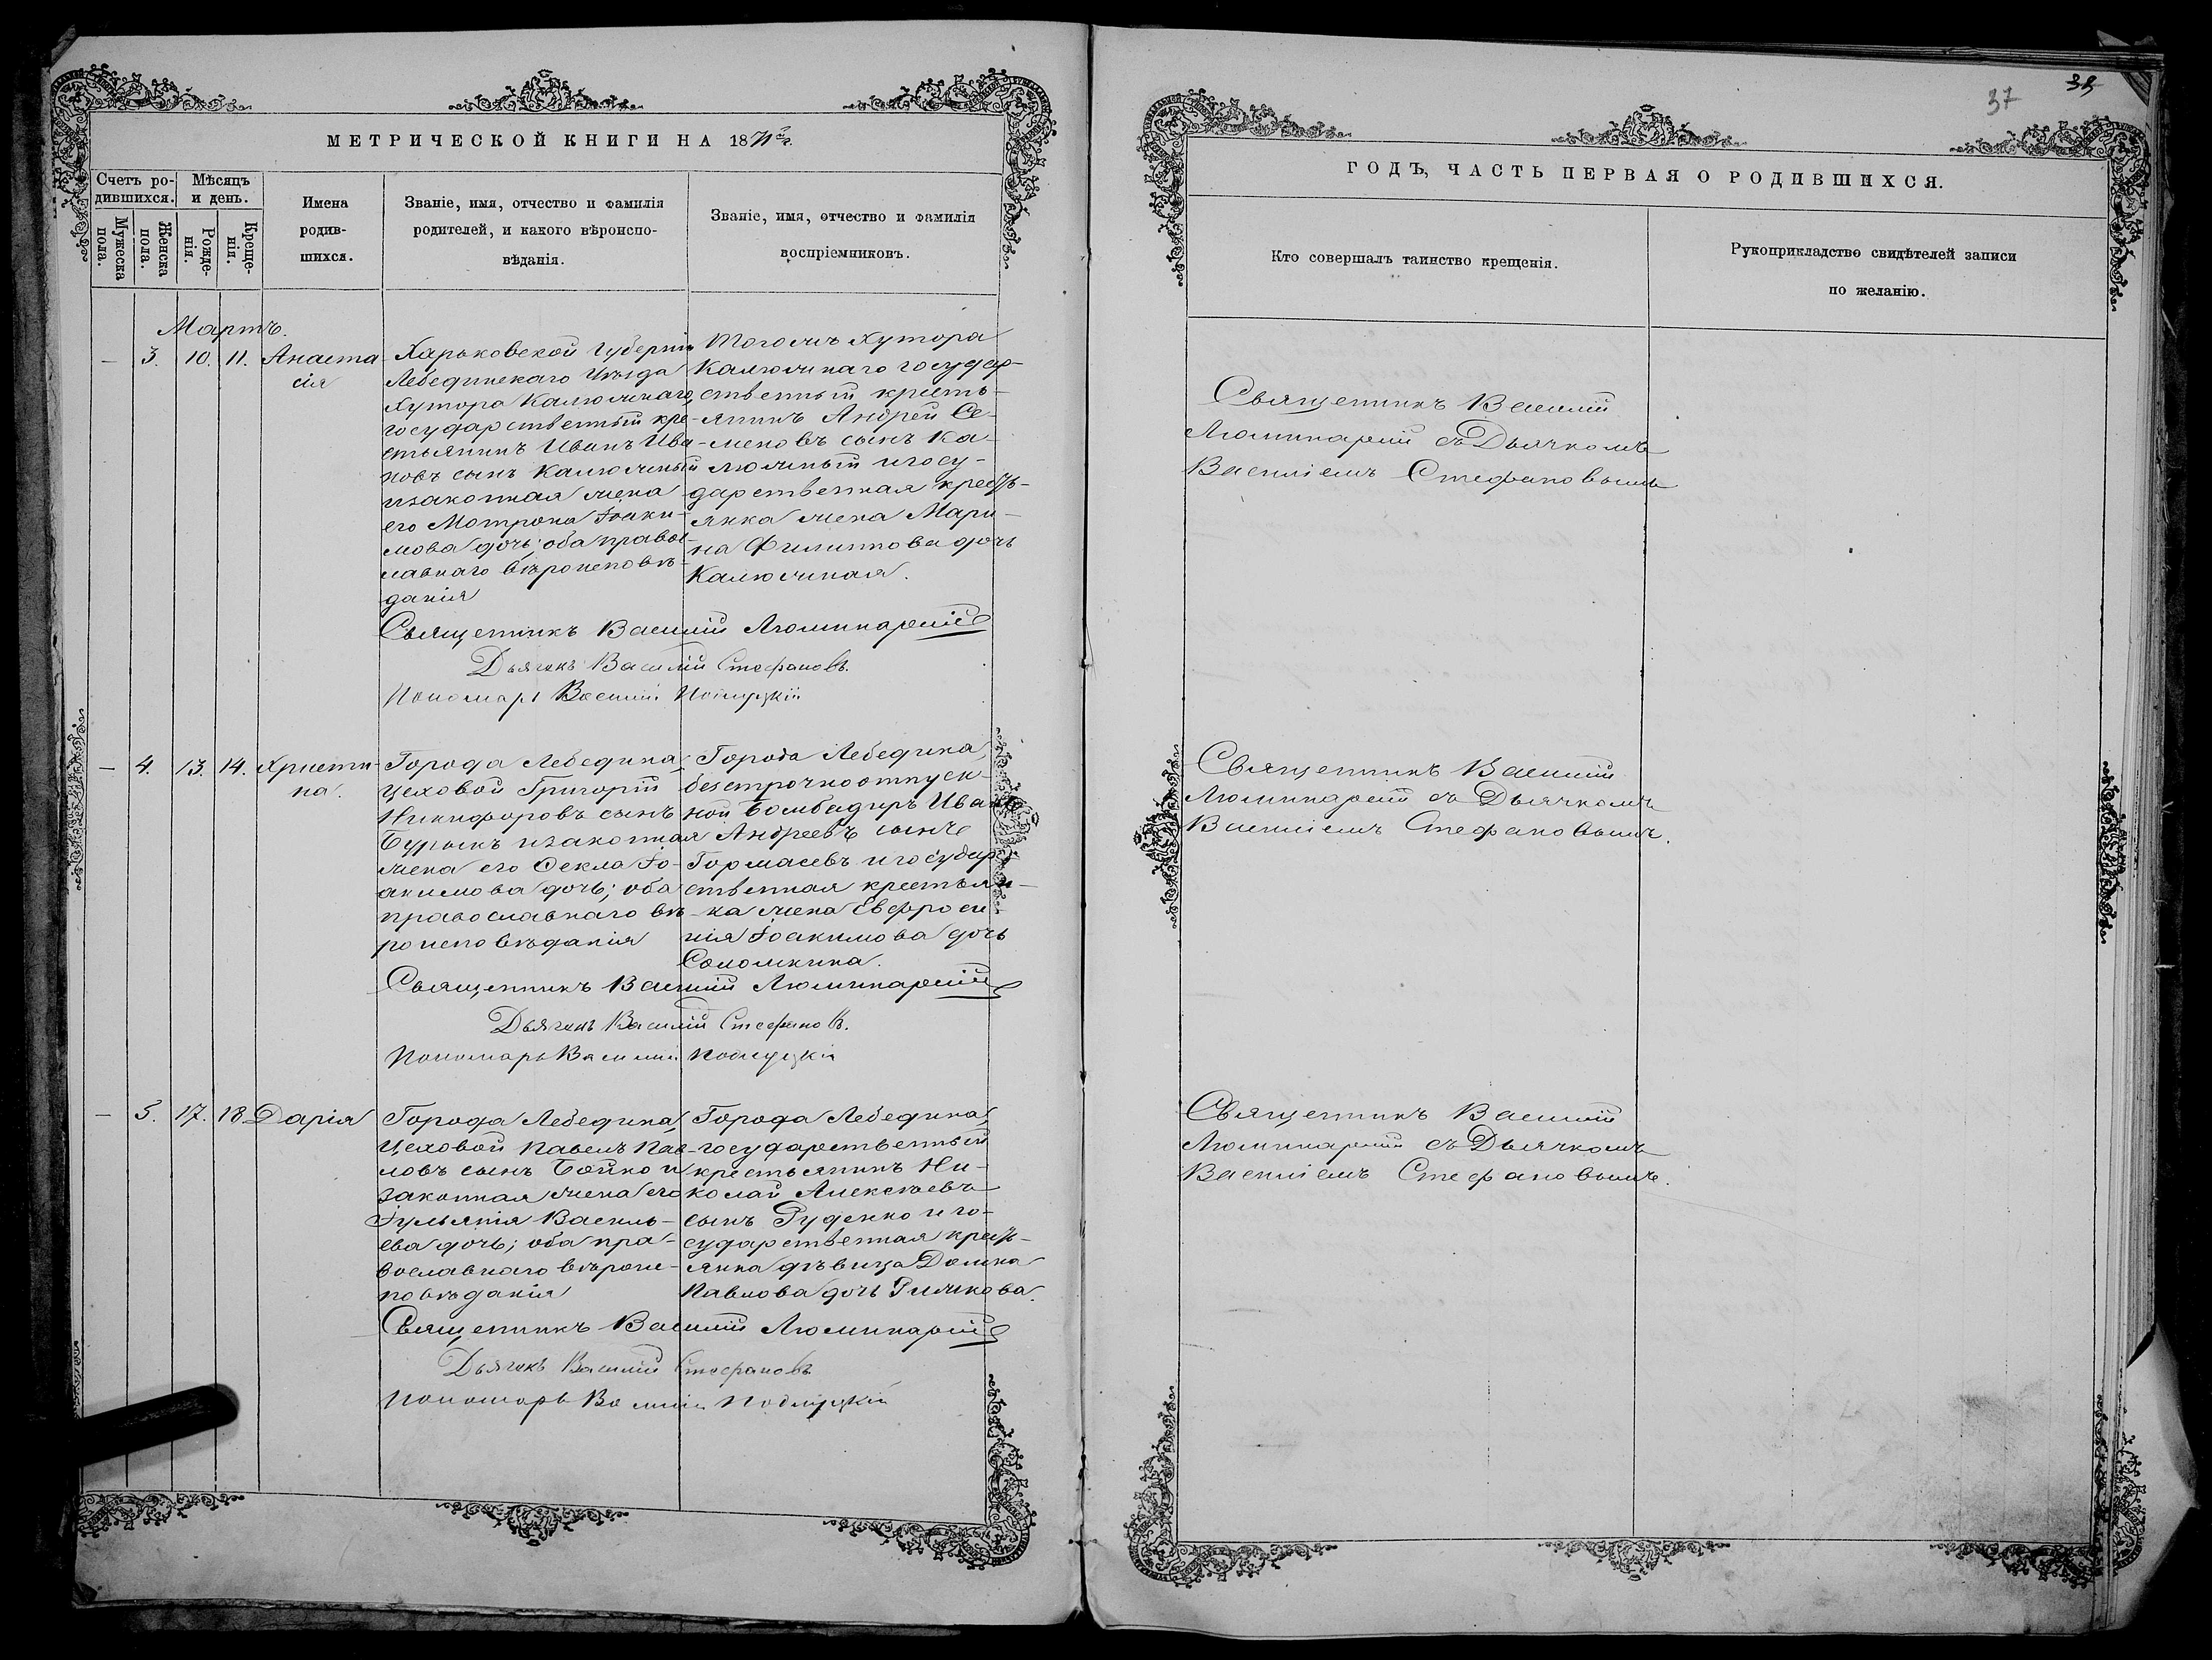 МЕТРИЧЕСКОЙ КНИГИ НА 1871й г.
Счетъ ро-
дившихся.
Мѣсяцъ
и день.
Мужеска
пола.
Женска
пола.
Рожде-
нія.
Креще-
нія.
Имена
родив-
шихся.
Званіе, имя, отчество и фамилія
родителей, и какого вѣроиспо-
вѣданія.
Званіе, имя, отчество и фамилія
воспріемниковъ.
Мартъ.
— 3. 10. 11. Анаста
сія
Харьковской Губерніи
Лебединскаго Уѣзда
Хутора Калюжнаго,
государственный кре-
стьянинъ Иванъ Ива-
новъ сынъ Калюжный
и законная жена
его Мотрона Іоаки-
мова дочь; оба правос-
лавнаго вѣроисповѣ-
данія
Тогожъ Хутора
Калюжнаго государ-
ственный кресть-
янинъ Андрей Се-
меновъ сынъ Ка-
люжный и госу-
дарственная кресть-
янка жена Мари-
на Филиппова дочь
Калюжная.
Священникъ Василій Люминарскій
Дьячекъ Василій Стефановъ.
Пономарь Василій
— 4. 13. 14. Христи-
на.
Города Лебедина,
цеховой Григорій
Никифоровъ сынъ
и законная
жена его Фекла Іо-
акимова дочь; оба
православнаго вѣ-
роисповѣданія
Города Лебедина,
безсрочноотпуск-
ной Бомбадиръ Иванъ
Андреевъ сынъ
и государ-
ственная крестьян-
ка жена Евфроси
нія Іоакимова дочь
Соломкина.
Священникъ Василій Люминарскій
Дьячекъ Василій Стефановъ.
Пономарь Василій
— 5. 17. 18. Дарія
Города Лебедина,
Цеховой Павелъ Пав-
ловъ сынъ Бойко и
законная жена его
Іульянія Василь-
ева дочь; оба пра-
вославнаго вѣроис-
повѣданія
Города Лебедина,
государственный
крестьянинъ Ни-
колай Алексѣевъ
сынъ Руденко и го-
сударственная кресть-
янка дѣвица Домна
Павлова дочь
Священникъ Василій Люминарскій
Дьячекъ Василій Стефановъ
Пономарь Василій
37
ГОДЪ, ЧАСТЬ ПЕРВАЯ О РОДИВШИХСЯ.
Кто совершалъ таинство крещенія.
Рукоприкладство свидѣтелей записи
по желанію.
Священникъ Василій
Люминарскій съ Дьячкомъ
Василіемъ Стефановымъ
Священникъ Василій
Люминарскій съ Дьячкомъ
Василіемъ Стефановымъ.
Священникъ Василій
Люминарскій съ Дьячкомъ
Василіемъ Стефановымъ.